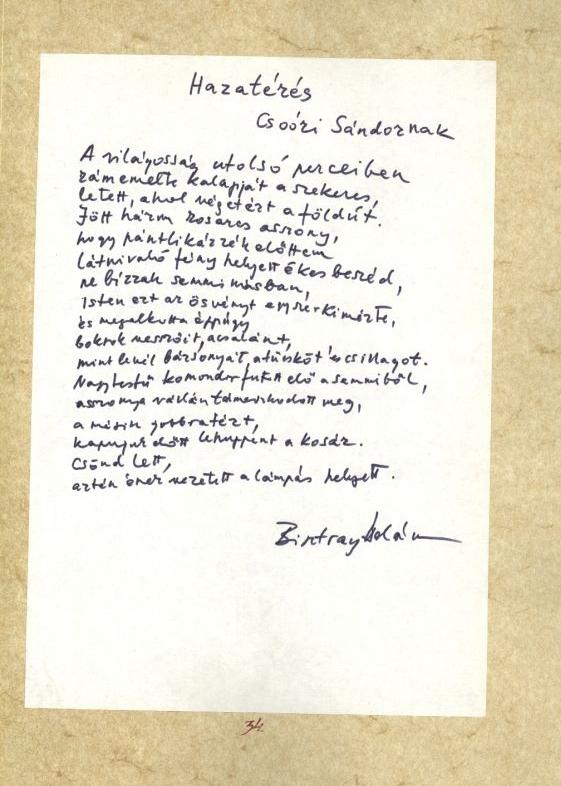 Hazatérés
Csoóri Sándornak
A világosság utolsó perceiben
rámemelte kalapját a szekeres,
letett, ahol végetért a földút.
Jött három kosaras asszony,
hogy pántlikázzék előttem
látnivaló fény helyett ékes beszéd,
ne bízzak semmi másban,
Isten ezt az ösvényt egyszer kimérte,
és megalkotta éppúgy
bokrok messzeit, a csalánt,
mint levél bársonyát, a tüskét és csillagot.
Nagytestű komondor futott elő a semmiből,
asszonya vállán támaszkodott meg,
a másik jobbratért,
kapujuk előtt lehuppant a kosár.
Csönd lett,
aztán ének vezetett a lámpás helyett.
Bisztray Ádám
34.